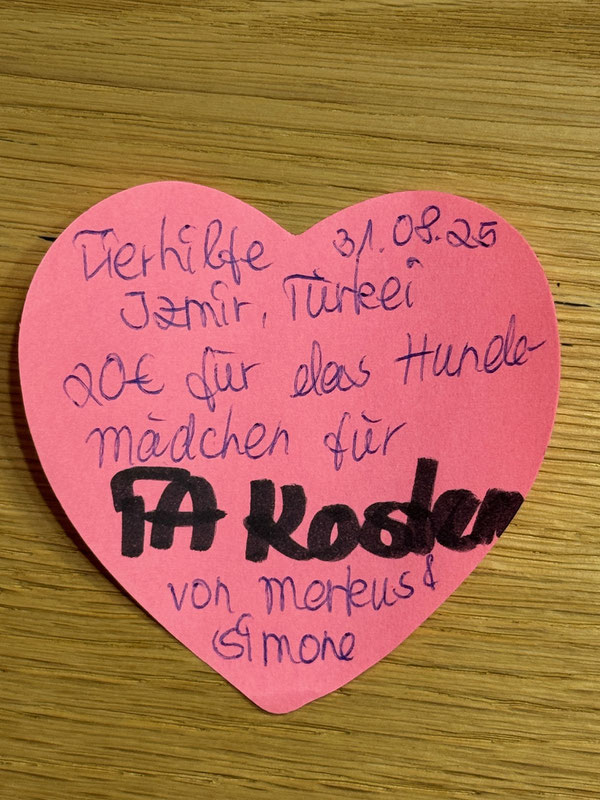 Tierhilfe 31.08.25
Izmir, Türkei
20€ für das Hunde-
mädchen für
TA Kosten
von Markus &
Simone